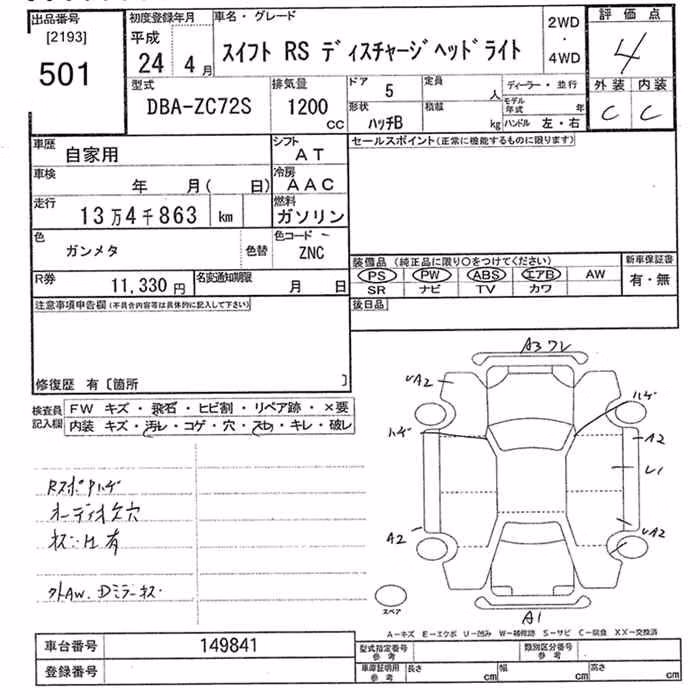 出品番号 初度登録年月 車名・グレード 2WD・4WD 評価点
[2193] 平成 スイフト RS ディスチャージヘッドライト 4
501 24年 4月
型式 排気量 ドア 5 定員 人 ディーラー・並行 外装 内装
DBA-ZC72S 1200 cc 形状 ハッチB 積載 kg モデル年式 年 C C
ハンドル 左・右
車歴 自家用 シフト AT セールスポイント(正常に機能するものに限ります)
車検 年 月( 日) 冷房 AAC
走行 13万4千863 km 燃料 ガソリン
色 ガンメタ 色替 色コード ZNC
装備品 (純正品に限り○をつけてください) 新車保証書
PS PW ABS エアB AW 有・無
SR ナビ TV カワ
R券 11,330円 名変通知期限 月 日
注意事項申告欄(不具合内容等は具体的に記入して下さい) 後日品
修復歴 有〔箇所 〕
検査員記入欄 FW キズ・飛石・ヒビ割・リペア跡・×要
内装 キズ・汚レ・コゲ・穴・スレ・キレ・破レ
A3 ワレ
UA2
ハゲ
ハゲ
A2
U1
A2
UA2
A1
スペア
Rスポイラハゲ
オーディオ欠穴
外AW.Dミラーキズ
A-キズ E-エクボ U-凹み W-補修跡 S-サビ C-腐食 XX-交換済
車台番号 149841 型式指定番号 参考 類別区分番号 参考
登録番号 車庫証明用 参考 長さ cm 幅 cm 高さ cm